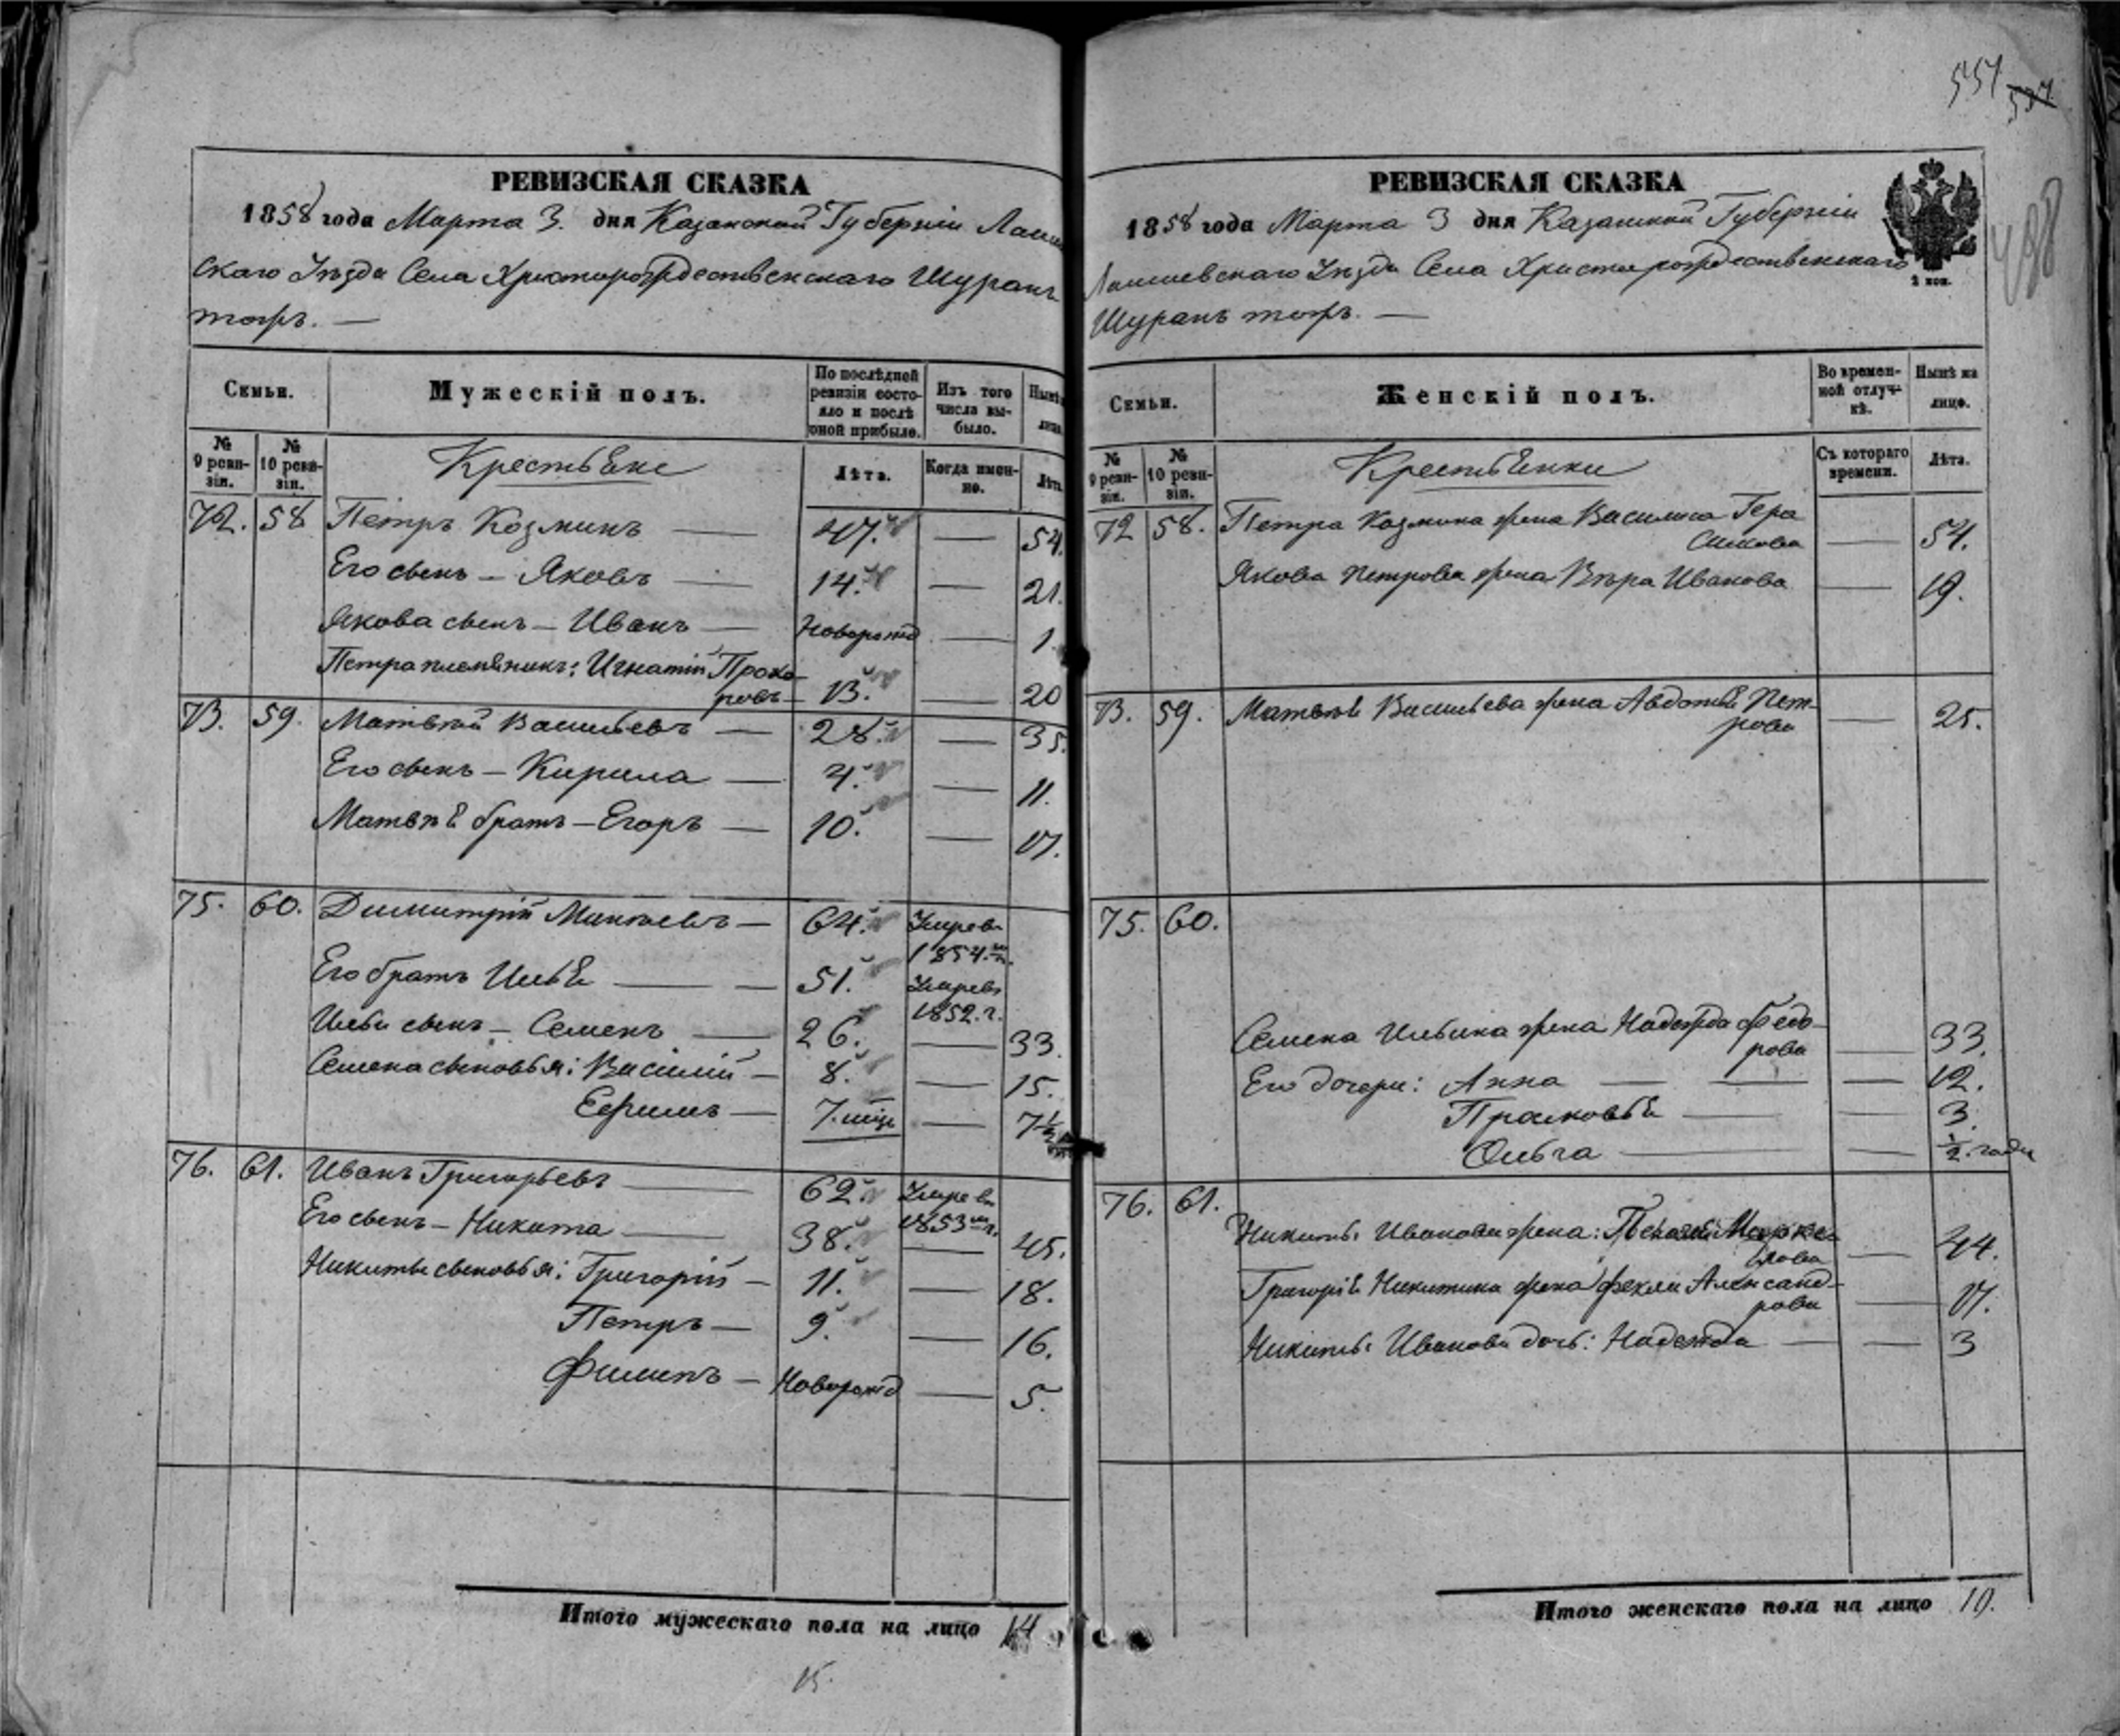 551 537
498
РЕВИЗСКАЯ СКАЗКА
1858 года Марта 3. дня Казанской Губерніи Лаиш
скаго Уѣзда Села Христорождественскаго Шуранъ
тожъ. —
Семьи.
Мужескій полъ.
По послѣдней ревизіи состояло и послѣ оной прибыло.
Изъ того числа выбыло.
Нынѣ на лицо.
№ 9 ревизіи.
№ 10 ревизіи.
Крестьяне
Лѣта.
Когда именно.
Лѣта.
72. 58 Петръ Козминъ — 47. — 54.
Его сынъ — Яковъ — 14. — 21.
Якова сынъ — Иванъ — Новорожд — 1.
Петра племянникъ: Игнатій Прохо-
ровъ — 13. — 20
73. 59. Матвѣй Васильевъ — 28. — 35.
Его сынъ — Кирила — 4. — 11.
Матвѣя братъ — Егоръ — 10. — 17.
75. 60. Димитрій Минѣевъ — 64. Умре въ
1854. г.
Его братъ Илья — 51. Умре въ
1852. г.
Ильи сынъ — Семенъ — 26. — 33.
Семена сыновья: Василій — 8. — 15.
Ефимъ — 7. мѣс — 7 1/2
76. 61. Иванъ Григорьевъ — 62 Умре въ
1853 г.
Его сынъ — Никита — 38. — 45.
Никиты сыновья: Григорій — 11. — 18.
Петръ — 9. — 16.
Филипъ — Новорожд — 5.
Итого мужескаго пола на лицо 14
15.
РЕВИЗСКАЯ СКАЗКА
1858 года Марта 3 дня Казанской Губерніи
Лаишевскаго Уѣзда Села Христорождественскаго
Шуранъ тожъ. —
2 коп.
Семьи.
Женскій полъ.
Во временной отлучкѣ.
Нынѣ на лицо.
№ 9 ревизіи.
№ 10 ревизіи.
Крестьянки
Съ котораго времени.
Лѣта.
72 58. Петра Козмина жена Василиса Гера
симова — 54.
Якова Петрова жена Вѣра Иванова — 19.
73. 59. Матвѣя Васильева жена Авдотья Пет-
рова — 25.
75. 60.
Семена Ильина жена Надежда Федо-
рова — 33.
Его дочери: Анна — 12.
Прасковья — 3.
Ольга — 1/2. года
76. 61.
Никиты Иванова жена: — 44.
Григорія Никитина жена Фекла Александ-
рова — 17.
Никиты Иванова дочь: Надежда — 3
Итого женскаго пола на лицо 10.